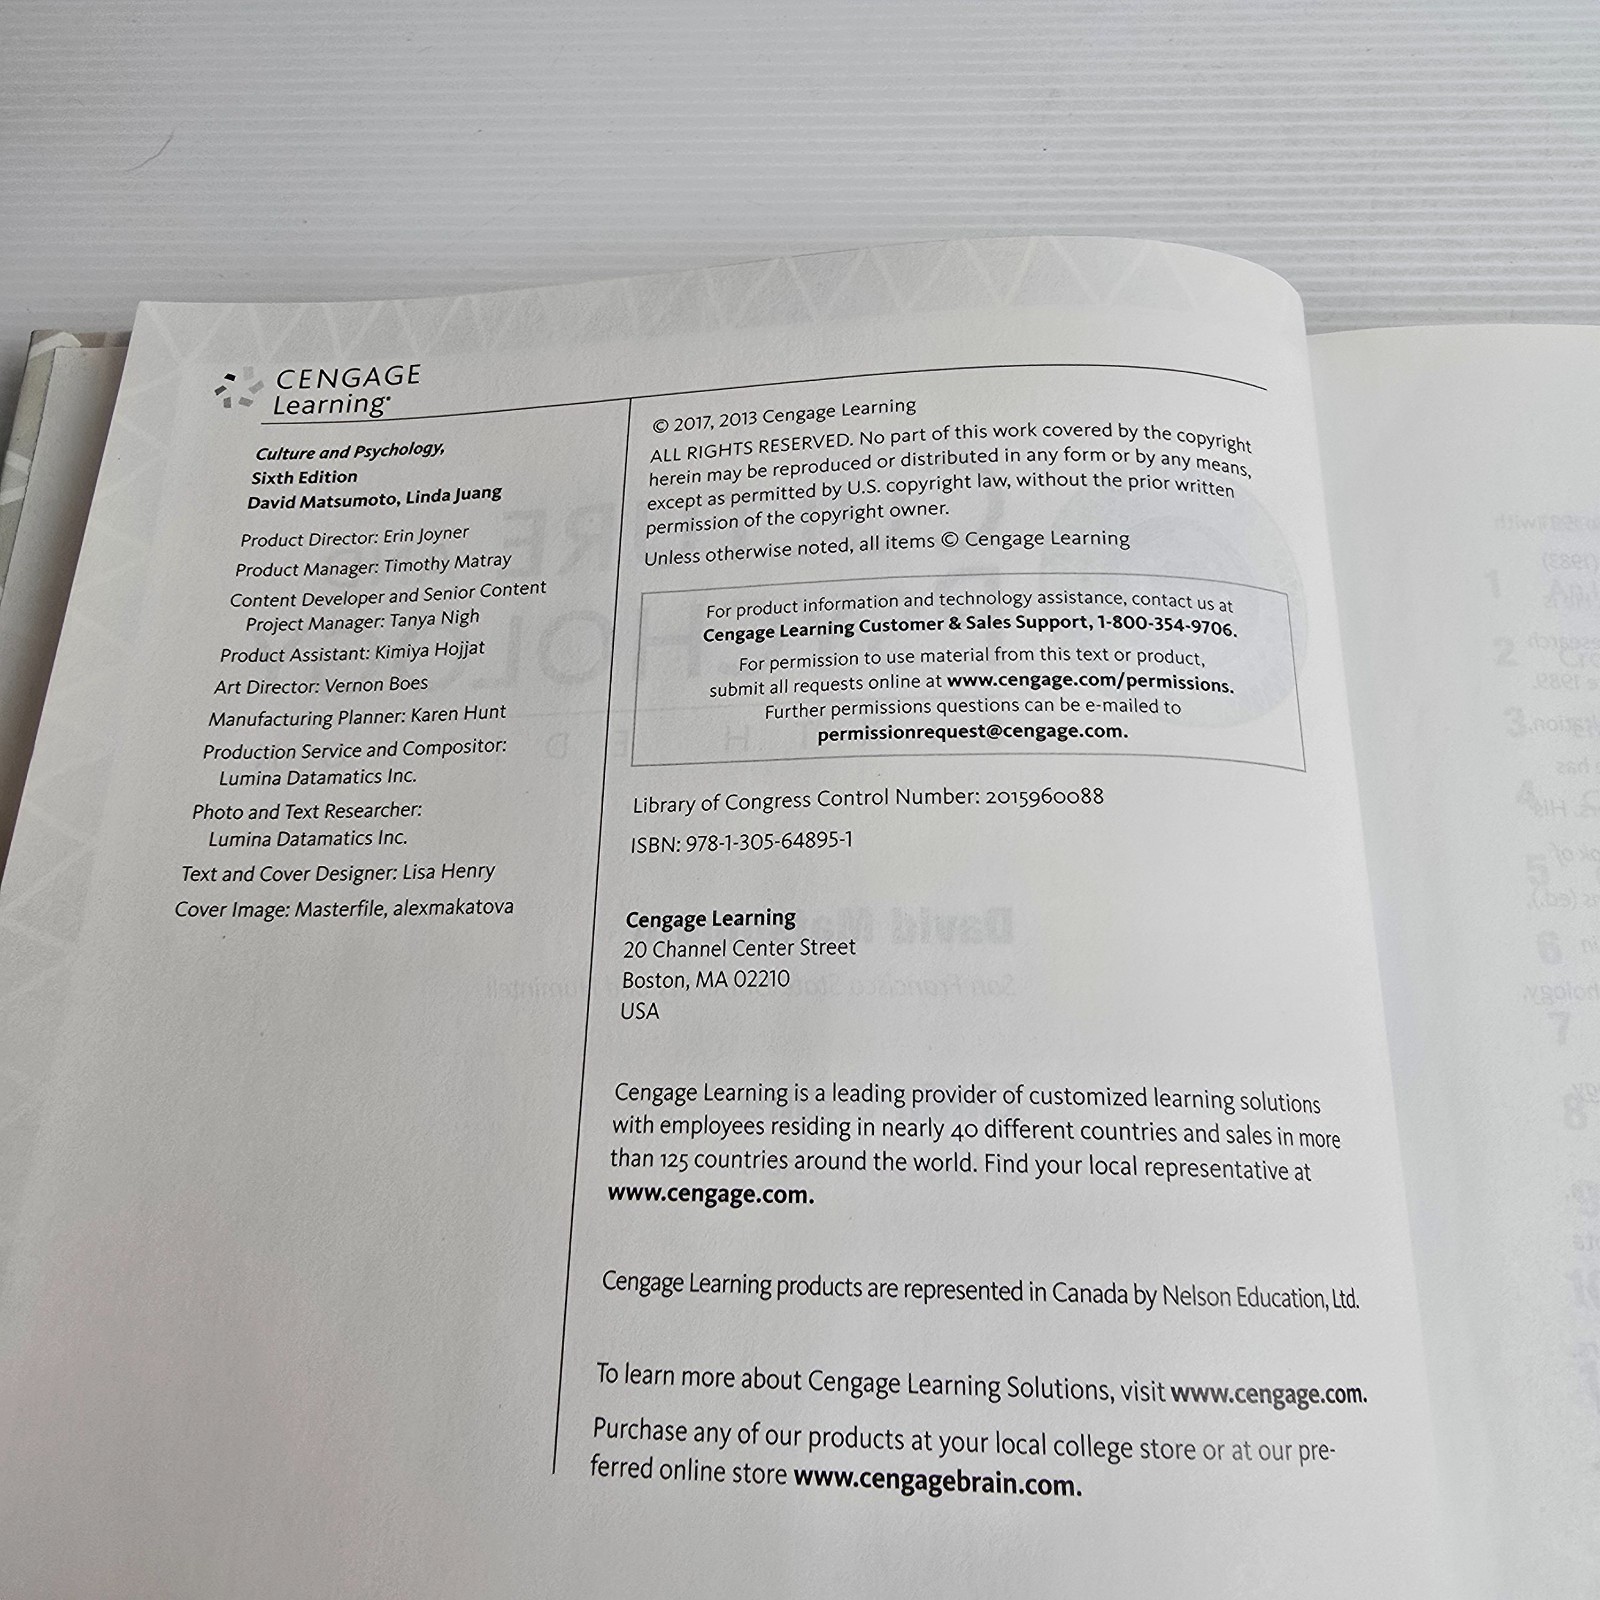 CENGAGE
Learning®
Culture and Psychology,
Sixth Edition
David Matsumoto, Linda Juang
Product Director: Erin Joyner
Product Manager: Timothy Matray
Content Developer and Senior Content
Project Manager: Tanya Nigh
Product Assistant: Kimiya Hojjat
Art Director: Vernon Boes
Manufacturing Planner: Karen Hunt
Production Service and Compositor:
Lumina Datamatics Inc.
Photo and Text Researcher:
Lumina Datamatics Inc.
Text and Cover Designer: Lisa Henry
Cover Image: Masterfile, alexmakatova
© 2017, 2013 Cengage Learning
ALL RIGHTS RESERVED. No part of this work covered by the copyright
herein may be reproduced or distributed in any form or by any means,
except as permitted by U.S. copyright law, without the prior written
permission of the copyright owner.
Unless otherwise noted, all items © Cengage Learning
For product information and technology assistance, contact us at
Cengage Learning Customer & Sales Support, 1-800-354-9706.
For permission to use material from this text or product,
submit all requests online at www.cengage.com/permissions.
Further permissions questions can be e-mailed to
permissionrequest@cengage.com.
Library of Congress Control Number: 2015960088
ISBN: 978-1-305-64895-1
Cengage Learning
20 Channel Center Street
Boston, MA 02210
USA
Cengage Learning is a leading provider of customized learning solutions
with employees residing in nearly 40 different countries and sales in more
than 125 countries around the world. Find your local representative at
www.cengage.com.
Cengage Learning products are represented in Canada by Nelson Education, Ltd.
To learn more about Cengage Learning Solutions, visit www.cengage.com.
Purchase any of our products at your local college store or at our pre-
ferred online store www.cengagebrain.com.